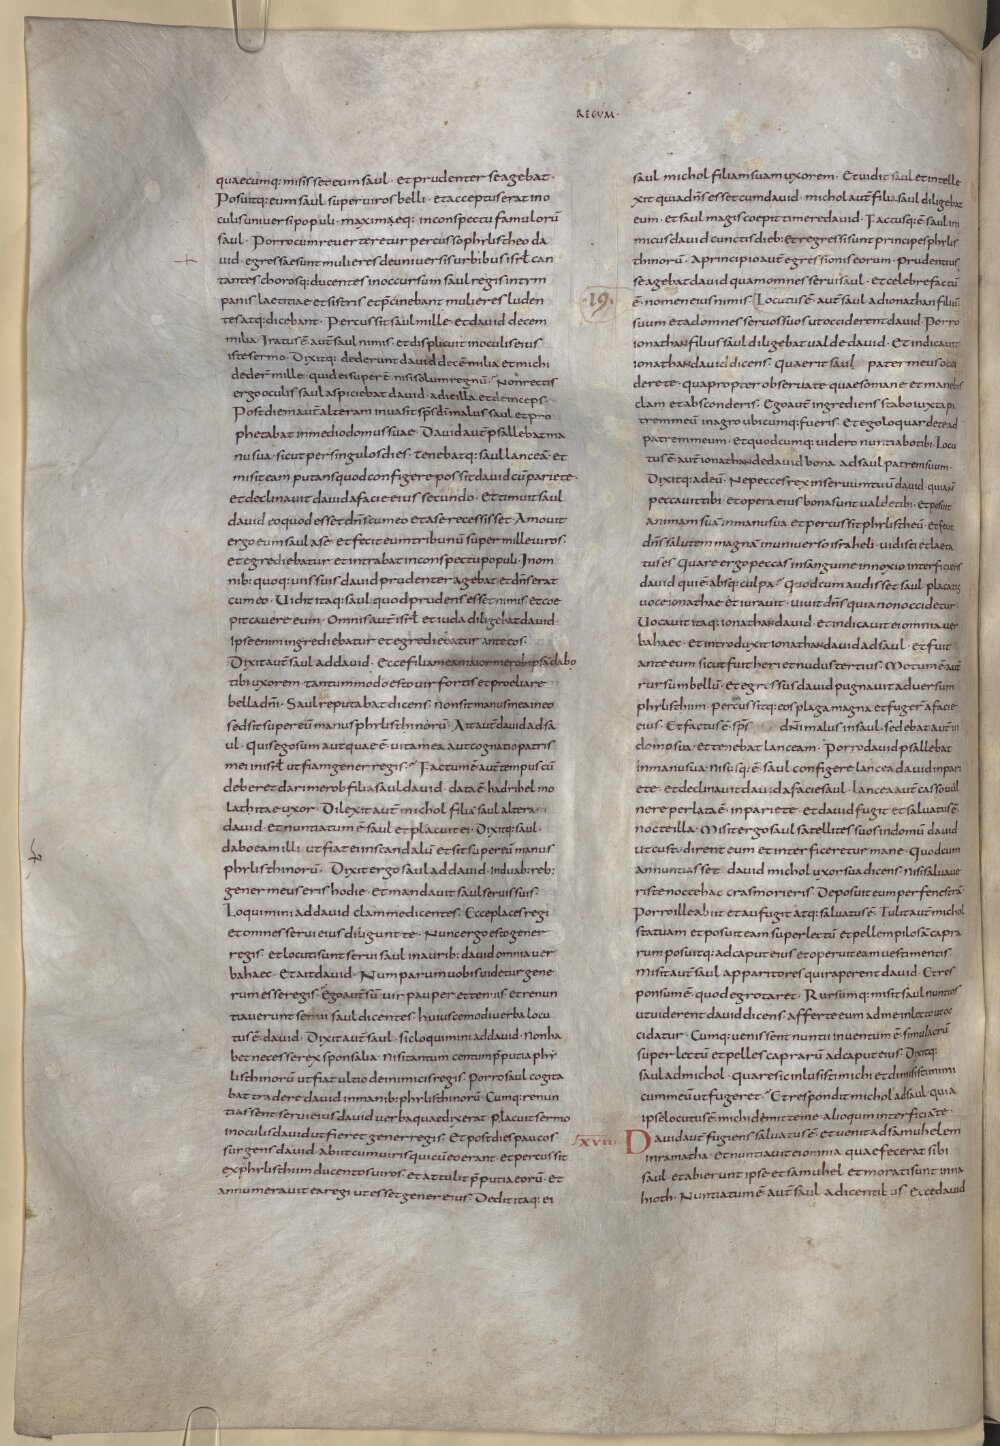 REGUM·
quaecumq: misisset eum saul · et prudenter se agebat ·
Posuitq: eum saul super viros belli · et acceptus erat in o
culis universi populi · maximaeq: in conspectu famulorū
saul · Porro cum reverteretur percusso philistheo da
vid · egressae sunt mulieres de universis urbibus isrł can
tantes chorosq: ducentes in occursum saul regis in tym
panis laetitiae et sistris et p̄cinebant mulieres luden
tes atq: dicebant · Percussit saul mille · et david decem
milia Iratus ē aut̄ saul nimis · et displicuit in oculis eius
iste sermo · Dixitq: dederunt david decē milia et michi
dedeř mille · quid ei super ē · nisi solum regnū · Non rectis
ergo oculis saul aspiciebat david · a die illa et deinceps ·
Post diem aut̄ alteram invasit sp̄s dī malus saul et pro
phetabat in medio domus suae · David aut̄ psallebat ma
nu sua · sicut per singulos dies · tenebatq: saul lanceā · et
misit eam putans quod configere possit david cū pariete ·
et declinavit david a facie eius secundo · Et timuit saul
david eo quod esset dn̄s cum eo et a se recessisset · Amovit
ergo eum saul a se · et fecit eum tribunū super mille viros ·
et egrediebatur et intrabat in conspectu populi · In om
nib: quoq: viis suis david prudenter agebat · et dn̄s erat
cum eo · Vidit itaq: saul quod prudens esset nimis · et coe
pit cavere eum · Omnis aut̄ isrł et iuda diligebat david ·
ipse enim ingrediebatur et egrediebatur ante eos ·
Dixit aut̄ saul ad david · Ecce filia mea maior merob ipsā dabo
tibi uxorem · tantummodo esto vir fortis et proeliare
bella dn̄i · Saul reputabat dicens · Non sit manus mea in eo
sed sit super eū manus philisthinorū · Ait aut̄ david ad sa
ul · Quis ego sum aut quae ē vita mea aut cognatio patris
mei in isrł ut fiam gener regis · Factum ē aut̄ tempus cū
deberet dari merob filia saul david · data ē hadrihel mo
lathitae uxor · Dilexit aut̄ michol filia saul altera
david · et nuntiatum ē saul et placuit ei · Dixitq: saul ·
dabo eam illi · ut fiat ei in scandalū et sit super eū manus
philisthinorū · Dixit ergo saul ad david · in duab: reb:
gener meus eris hodie · et mandavit saul servis suis ·
Loquimini ad david clam me dicentes · Ecce places regi
et omnes servi eius diligunt te · Nunc ergo esto gener
regis · et locuti sunt servi saul in aurib: david omnia ver
ba haec · Et ait david · Num parum vobis videtur gene
rum esse regis · Ego aut̄ sū vir pauper et tenuis · et renun
tiaverunt servi saul dicentes · huiuscemodi verba locu
tus ē david · Dixit aut̄ saul · sic loquimini ad david · Non ha
bet necesse rex sponsalia · nisi tantum centum p̄putia phi
listhinorū ut fiat ultio de inimicis regis · Porro saul cogita
bat tradere david in manib: philisthinorū · Cumq: renun
tiassent servi eius david verba quae dixerat · placuit sermo
in oculis david ut fieret gener regis · Et post dies paucos
surgens david · abiit cum viris qui cū eo erant · et percussit
ex philisthiim ducentos viros · et attulit p̄putia eorū · et
annumeravit ea regi ut esset gener eius · Dedit itaq: ei
saul michol filiam suam uxorem · Et vidit saul et intelle
xit quia dn̄s esset cum david · michol aut̄ filia saul diligebat
eum · et saul magis coepit timere david · Factusq: ē saul ini
micus david cunctis dieb: Et regressi sunt principes philis
thinorū · A principio aut̄ egressionis eorum · prudentius
se agebat david quam omnes servi saul · et celebre factū
·19·
ē nomen eius nimis · Locutus ē aut̄ saul ad ionathan filiū
suum et ad omnes servos suos ut occiderent david · Porro
ionathan filius saul diligebat valde david · Et indicavit
ionathan david dicens · Quaerit saul pater meus occi
dere te · quapropter observate quaeso mane et manebis
clam et absconderis · Ego aut̄ ingrediens stabo iuxta pa
trem meū in agro ubicumq: fueris · Et ego loquar de te ad
patrem meum · et quodcumq: videro nuntiabo tibi · Locu
tus ē aut̄ ionathan de david bona ad saul patrem suum ·
Dixitq: ad eū · Ne pecces rex in servum tuū david · quia ñ
peccavit tibi · et opera eius bona sunt valde tibi · et posuit
animam suā in manu sua et percussit philistheū · et fecit
dn̄s salutem magnā in universo israheli · vidisti et laeta
tus es · Quare ergo peccas in sanguine innoxio interficiens
david qui ē absq: culpa · Quod cum audisset saul placatus
voce ionathae et iuravit · vivit dn̄s quia non occidetur ·
Vocavit itaq: ionathan david · et indicavit ei omnia ver
ba haec · Et introduxit ionathan david ad saul · et fuit
ante eum sicut fuit heri et nudustertius · Motum ē aut̄
rursum bellū · Et egressus david pugnavit adversum
philisthiim · percussitq: eos plaga magna et fugeř a facie
eius · Et factus ē sp̄s dn̄i malus in saul · sedebat aut̄ in
domo sua · et tenebat lanceam · Porro david psallebat
in manu sua · Nisusq: ē saul configere lancea david in pari
ete · et declinavit david a facie saul · lancea aut̄ casso vul
nere perlata ē in pariete · et david fugit et salvatus ē
nocte illa · Misit ergo saul satellites suos in domū david
ut custodirent eum et interficeretur mane · Quod cum
annuntiasset david michol uxor sua dicens · nisi salvave
ris te nocte hac cras morieris · Deposuit eum per fenestrā ·
Porro ille abiit et aufugit atq: salvatus ē · Tulit aut̄ michol
statuam et posuit eam super lectū et pellem pilosā capra
rum posuitq: ad caput eius et operuit eam vestimentis ·
misit aut̄ saul apparitores qui raperent david · Et res
ponsum ē quod egrotaret · Rursumq: misit saul nuntios
ut viderent david dicens · afferte eum ad me in lecto ut oc
cidatur · Cumq: venissent nuntii inventum ē simulacrū
super lectū et pelles caprarū ad caput eius · Dixitq:
saul ad michol · Quare sic inlusisti michi et dimisisti inimi
cum meū ut fugeret · Et respondit michol ad saul · quia
ipse locutus ē michi dimitte me · alioquin interficiā te ·
xvii· David aut̄ fugiens salvatus ē · et venit ad samuhelem
in ramatha · et nuntiavit ei omnia quae fecerat sibi
saul · et abierunt ipse et samuhel et morati sunt in na
hioth · Nuntiatum ē aut̄ saul a dicentibus · Ecce david